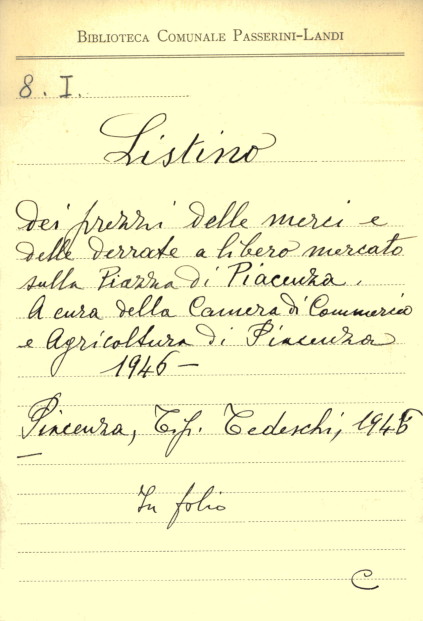 BIBLIOTECA COMUNALE PASSERINI-LANDI
8. I.
Listino
dei prezzi delle merci e
delle derrate a libero mercato
sulla Piazza di Piacenza.
A cura della Camera di Commercio
e Agricoltura di Piacenza
1946 —
Piacenza, Tip. Tedeschi, 1946
—
In folio
C